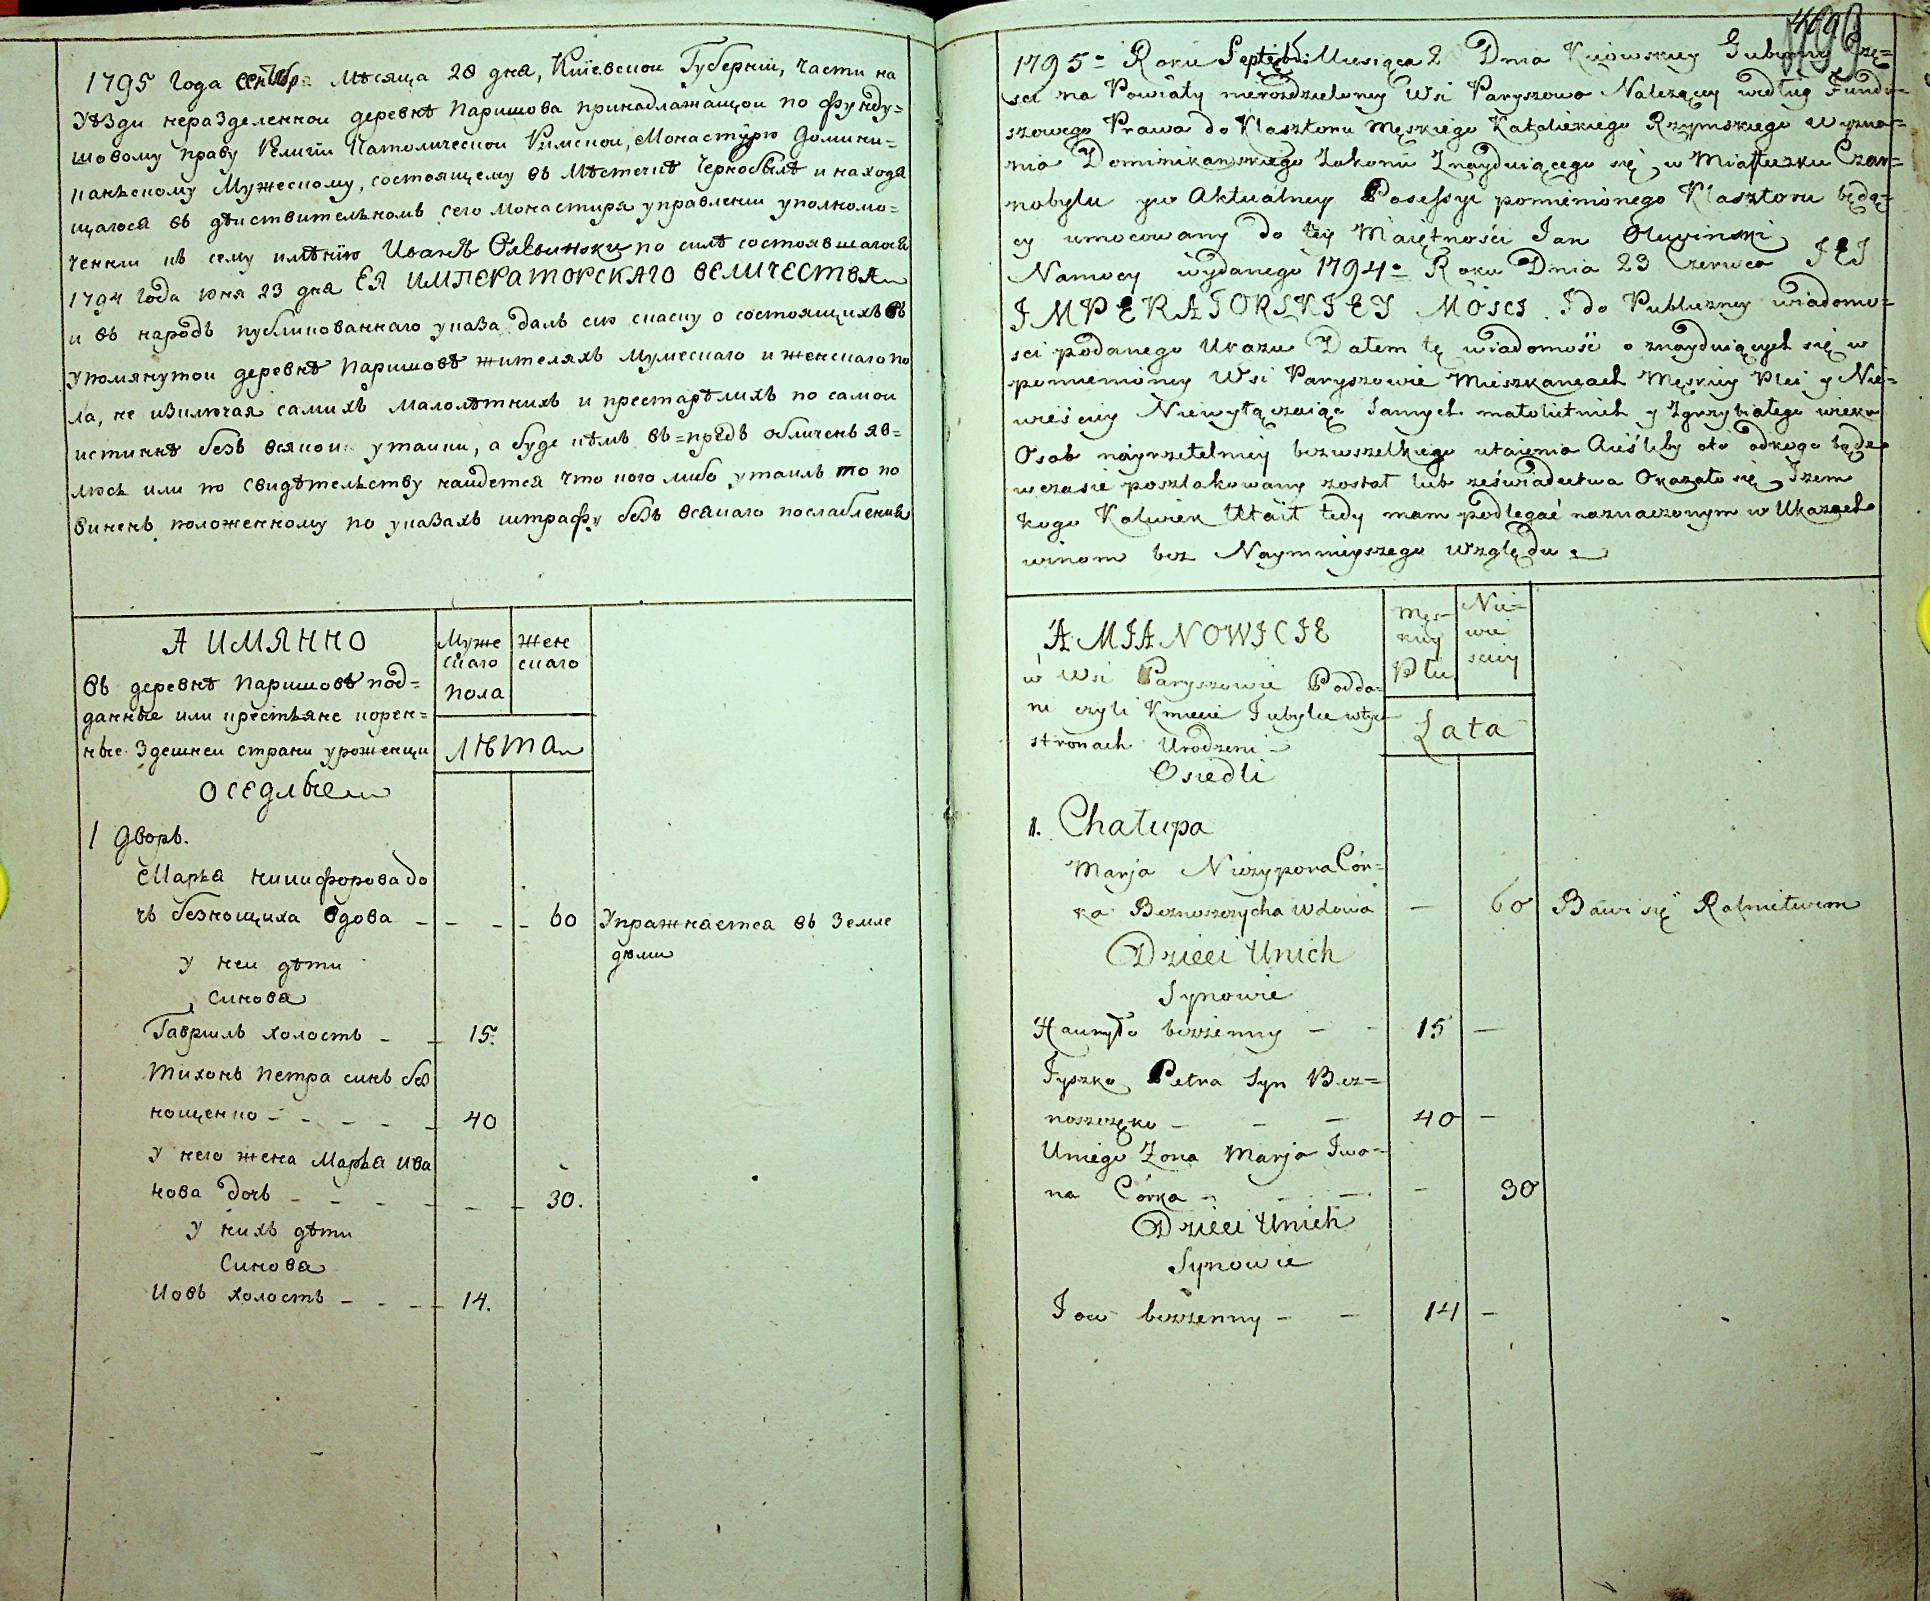 1795 Года сентября Мѣсяца 28 дня, Кіевской Губерніи, части на
Уѣзди неразделенной деревнѣ Паришова принадлажащой по фунду=
шовому праву Религіи Католической Римской, Монастырю Домини=
канъскому Мужескому, состоящему въ Мѣстечкѣ Чернобылѣ и находя
щагося въ дѣиствительномъ сего монастиря управленіи уполномо=
ченни къ сему имѣнію Иванъ по силѣ состоявшагося
1794 Года юня 23 дня ЕЯ ИМПЕРАТОРСКАГО ВЕЛИЧЕСТВА
и въ народъ публикованнаго указа далъ сию скаску о состоящихъ въ
упомянутои деревнѣ Паришовѣ жителяхъ мужескаго и женскаго по
ла, не изключая самихъ малолѣтнихъ и престарѣлихъ по самои
истиннѣ безъ всякои утаики, а буде кѣмъ въ=предь обличенъ яв=
люсь или по свидѣтельству наидется что кого либо утаилъ то по
виненъ положенному по указахъ штрафу безъ всякаго послабления
А ИМЯННО
въ деревнѣ Паришовѣ под=
данные или крестьяне корен=
ные здешнеи страни уроженци
оседлые
Муже
скаго
пола
жен
скаго
лѣта
1 Дворъ.
Марья Никифорова до
чъ безнощиха вдова - - - - 60 Упражняется въ земле
дѣлии
У неи дѣти
синова
Гаврилъ холостъ - - 15.
Тихонъ Петра синъ без
нощенко - - - - - 40
У него жена Марья Ива
нова дочъ - - - - - - - 30.
У нихъ дѣти
Синова
Иовъ холостъ - - - - 14.
1795= Roku Septębr: Miesiąca 2 Dnia Kiiowskiey Gubernij Czę=
sci na Powiaty nierozdzieloney Wsi Paryszowo Nalezącey według Fundu=
szowego Prawa do Klasztoru Męskiego Katolickiego Rzymskiego Wyzna=
nia Dominikanskiego Zakonu Znayduiącego się w Miasteczku Czar=
nobylu yw Aktualney Possessyi pomienionego Klasztoru będą=
cy umocowany do tey Maiętności Jan Olewinski
Namocy wydanego 1794= Roku Dnia 23 Czerwca JEJ
IMPERATORSKIEY MOSCI I do Publiczney wiadomo=
sci podanego Ukazu Dałem tę wiadomość o znayduiących się w
pomienioney Wsi Paryszowie Mieszkancach Męskiey Płci y Nie=
wieściey Niewyłączaiąc Samych małoletnich y Zgrzybiałego wieku
Osob nayrzetelniey bezwszelkiego utaienia Aieśliby oto odkogo bądz
wczasie poszlakowany został lubzeświadectwa Okazało się Izem
kogo Kolwiek Utaił tedy mam podlegać naznaczonym w Ukazach
winom bez Naymnieyszego Względu
A MIANOWICIE
w Wsi Paryszowie Podda=
ni czyli Kmiecie Tubylce wtych
stronach Urodzeni
Osiedli
Męs=
kiey
Płci
Nie=
wie
sciey
Lata
1. Chałupa
Marja Niczypora Cór=
ka Beznoszczycha Wdowa - 60 Bawi się Rolnictwem
Dzieci Unich
Synowie
Hauryło bezżenny - - 15 -
Tyszko Petra Syn Bez=
noszczęko - - - 40 -
Uniego Zona Marja Iwa=
na Córka - - - - 30
Dzieci Unich
Synowie
Jow bezżenny - - 14 -